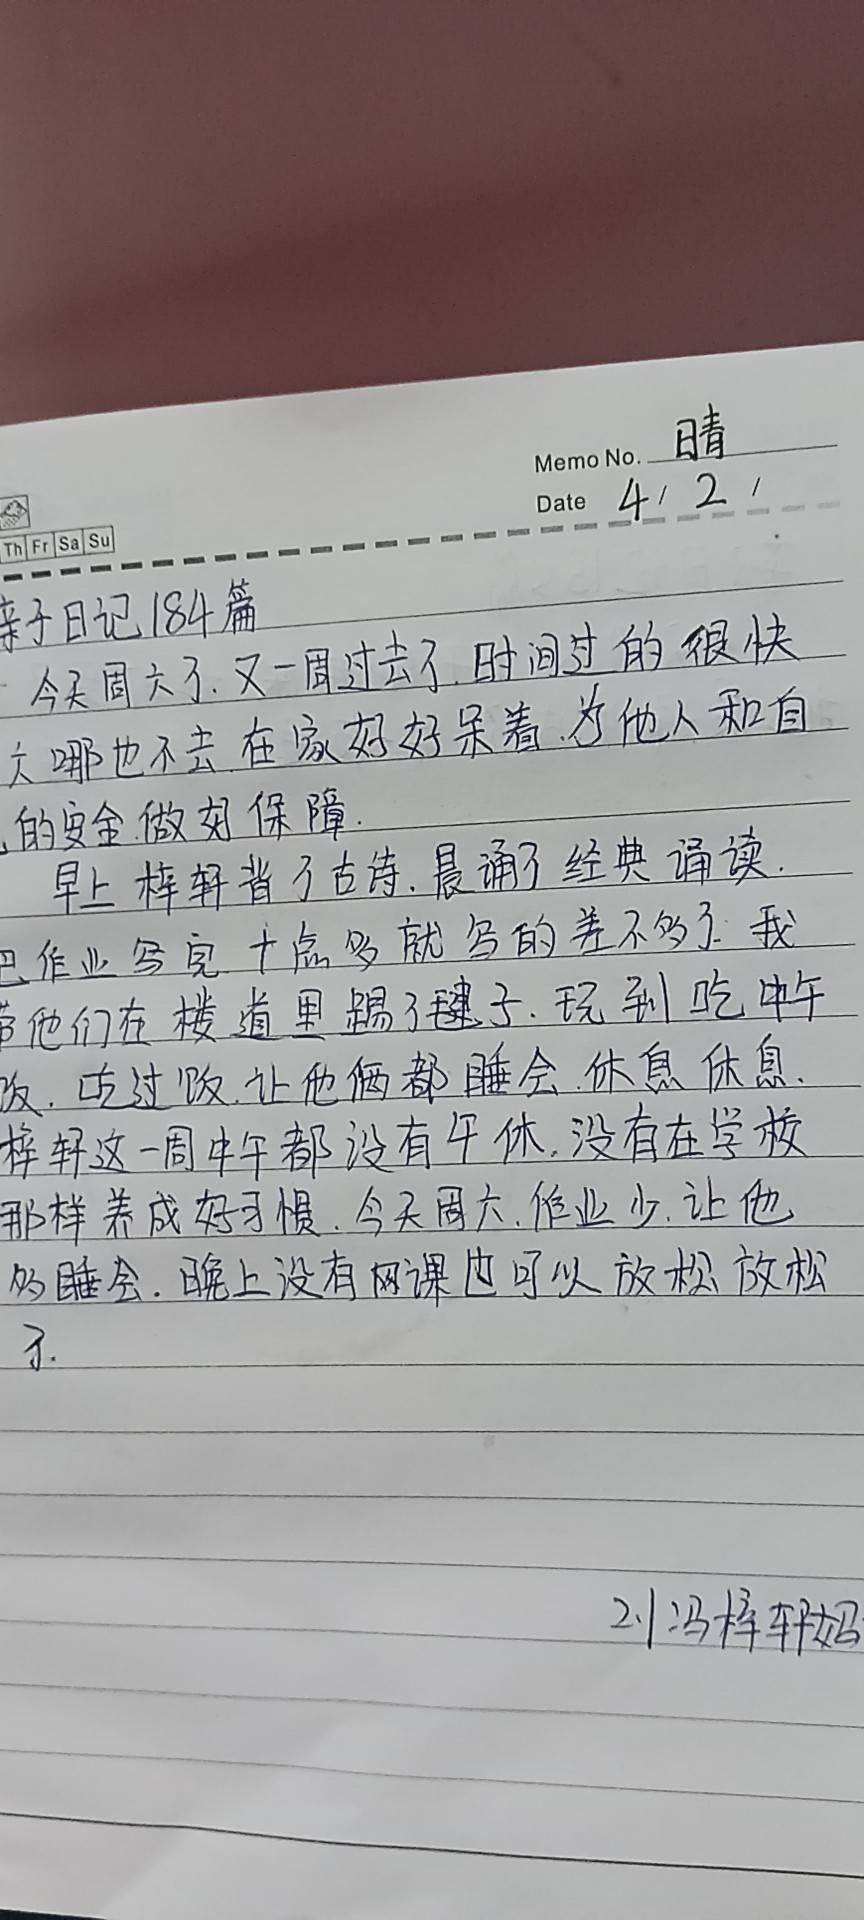 Memo No. 晴
Date 4 / 2 /
Th Fr Sa Su
亲子日记184篇
今天周六了.又一周过去了.时间过的很快
六哪也不去.在家好好呆着.为他人和自
的安全.做好保障.
早上梓轩背了古诗.晨诵了经典诵读.
把作业写完十点多就写的差不多了.我
带他们在楼道里踢了毽子.玩到吃中午
饭.吃过饭.让他俩都睡会.休息休息.
梓轩这一周中午都没有午休.没有在学校
那样养成好习惯.今天周六.作业少.让他
多睡会.晚上没有网课也可以放松放松
了.
2.1冯梓轩妈